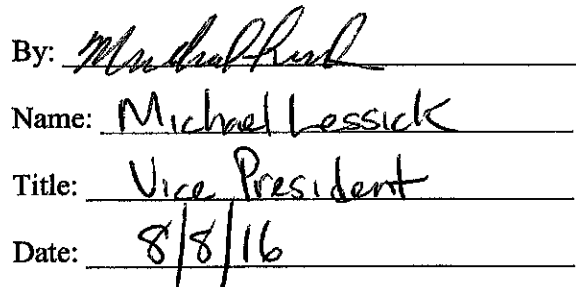 By:
Name: Michael Lessick
Title: Vice President
Date: 8/8/16